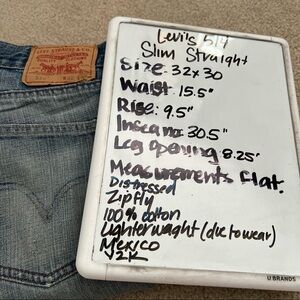 LEVI STRAUSS & CO.
Levi's 514
Slim Straight
Size: 32x30
Waist: 15.5"
Rise: 9.5"
Inseam: 30.5"
Leg Opening: 8.25"
Measurements Flat.
Distressed
Zip fly
100% cotton
Lighterweight (due to wear)
Mexico
Y2K
U BRANDS